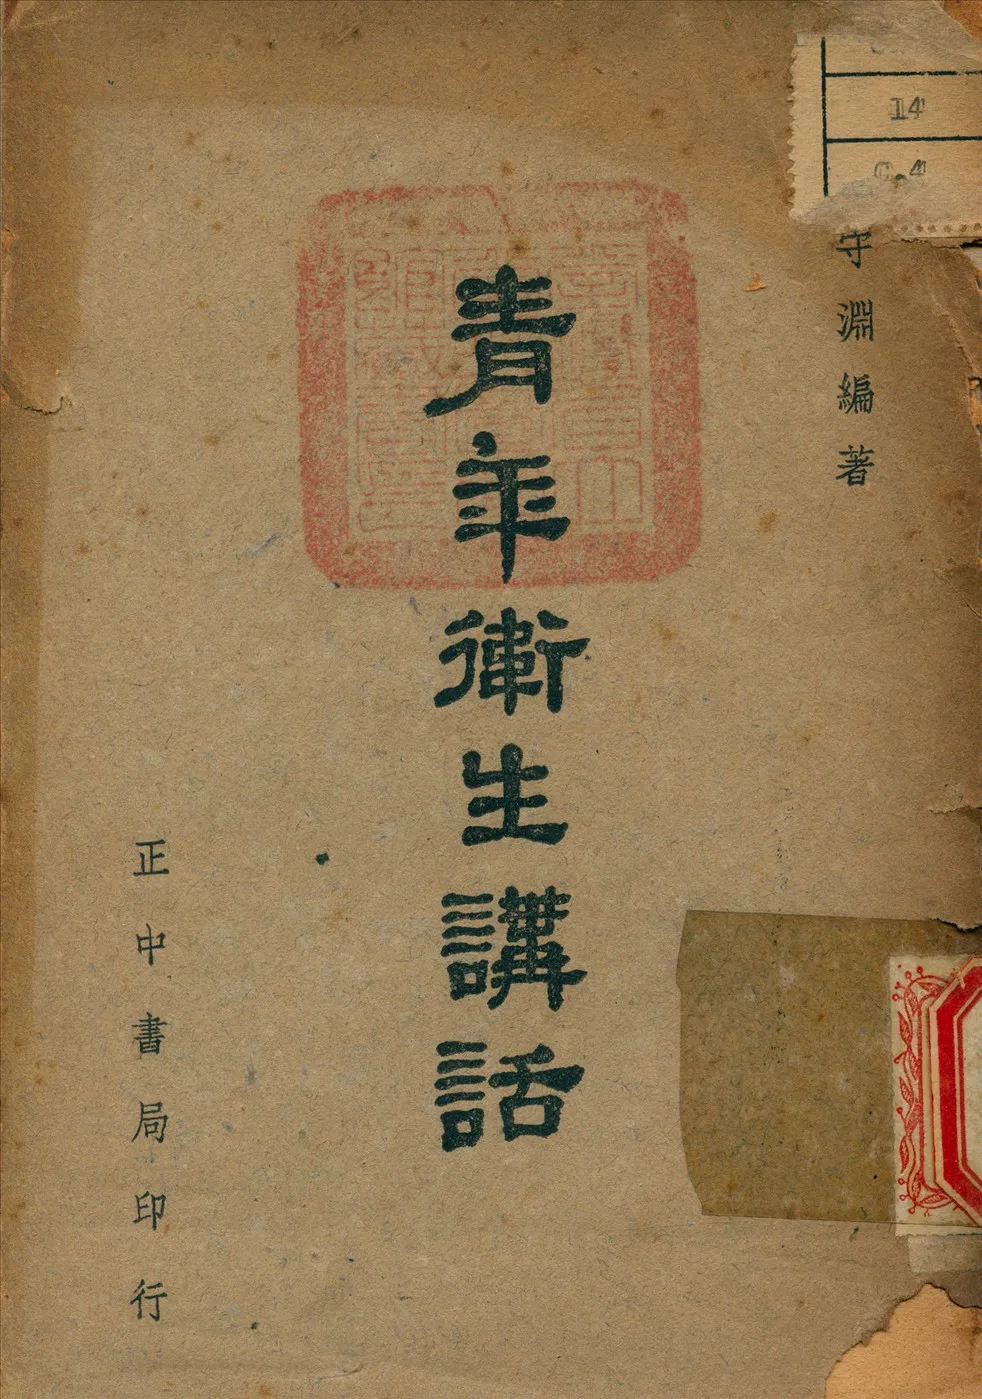 14
C.4
守淵編著
青年衛生講話
正中書局印行